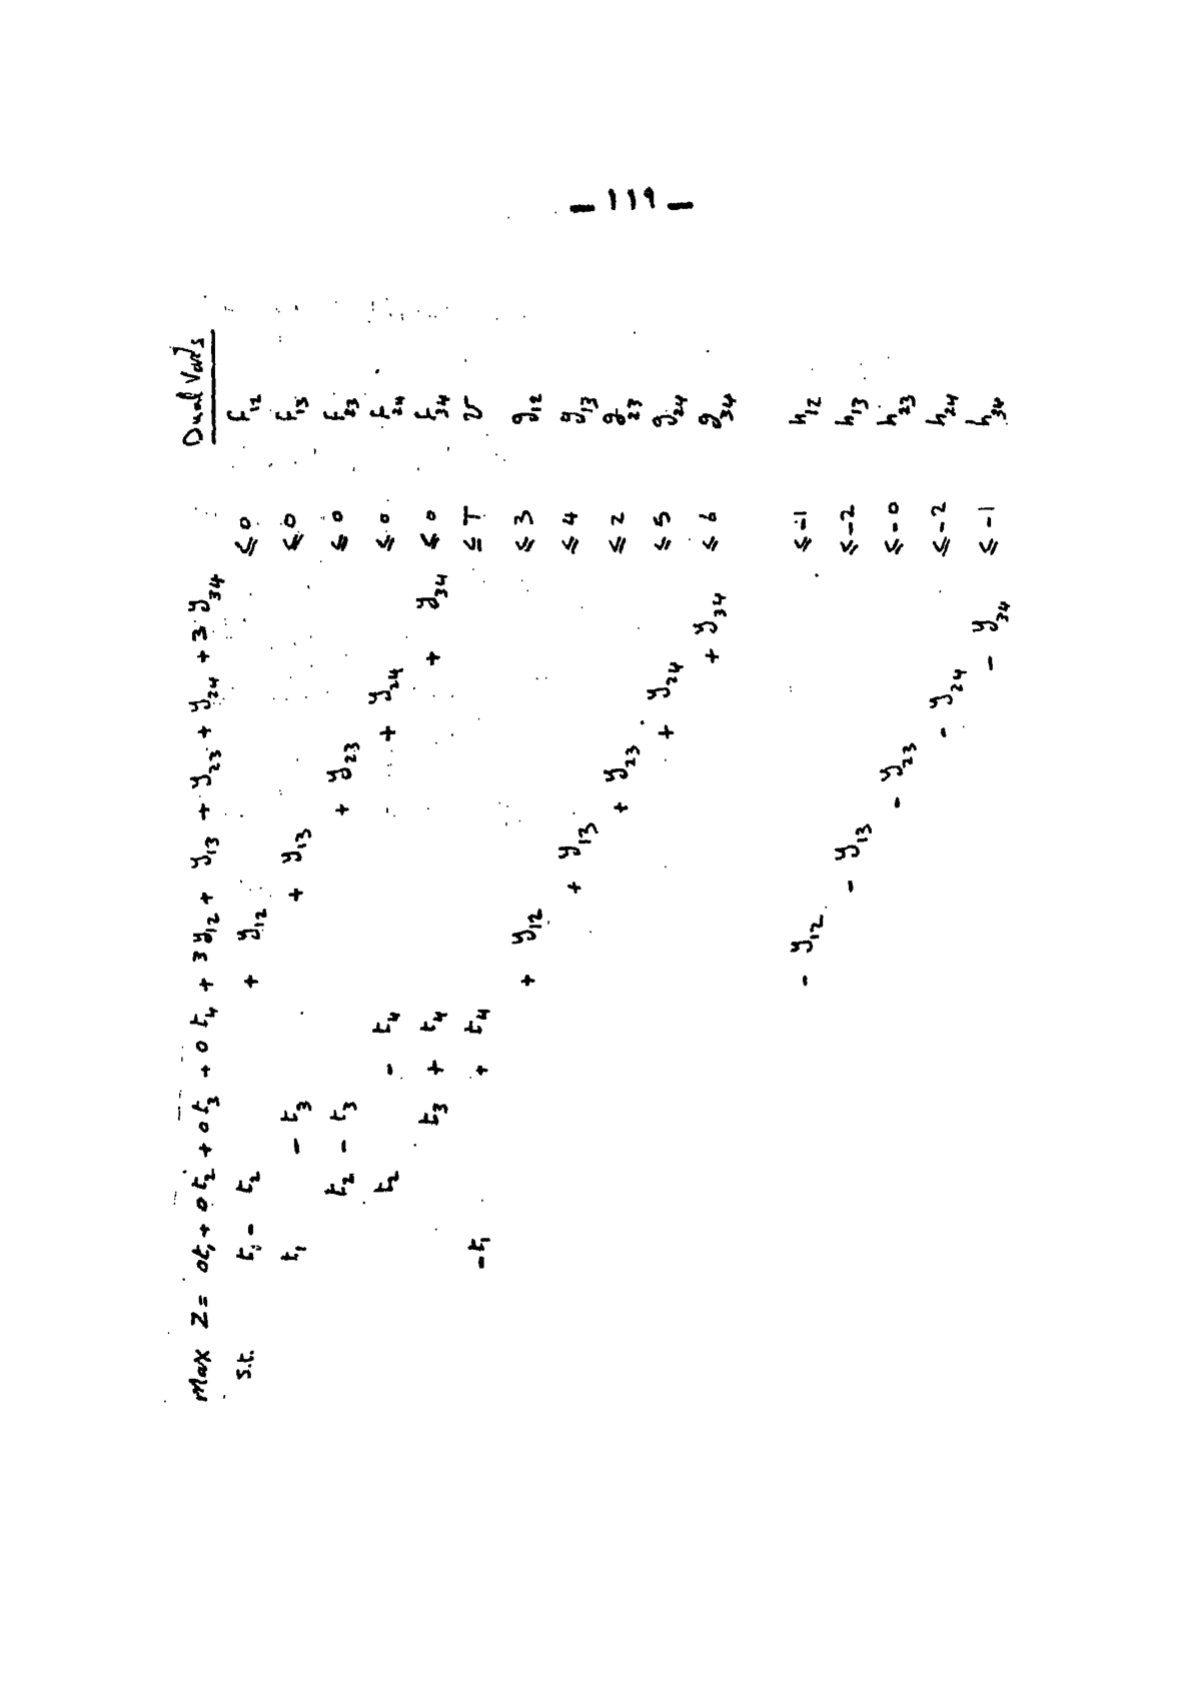 - ١١٩ -
Dual Var's
Max Z = 0t₁ + 0t₂ + 0t₃ + 0t₄ + 3y₁₂ + y₁₃ + y₂₃ + y₂₄ + 3y₃₄
s.t. t₁ - t₂ + y₁₂ ≤ 0 f₁₂
t₁ - t₃ + y₁₃ ≤ 0 f₁₃
t₂ - t₃ + y₂₃ ≤ 0 f₂₃
t₂ - t₄ + y₂₄ ≤ 0 f₂₄
t₃ + t₄ + y₃₄ ≤ 0 f₃₄
-t₁ + t₄ ≤ T v
+ y₁₂ ≤ 3 g₁₂
+ y₁₃ ≤ 4 g₁₃
+ y₂₃ ≤ 2 g₂₃
+ y₂₄ ≤ 5 g₂₄
+ y₃₄ ≤ 6 g₃₄
- y₁₂ ≤ -1 h₁₂
- y₁₃ ≤ -2 h₁₃
- y₂₃ ≤ -0 h₂₃
- y₂₄ ≤ -2 h₂₄
- y₃₄ ≤ -1 h₃₄